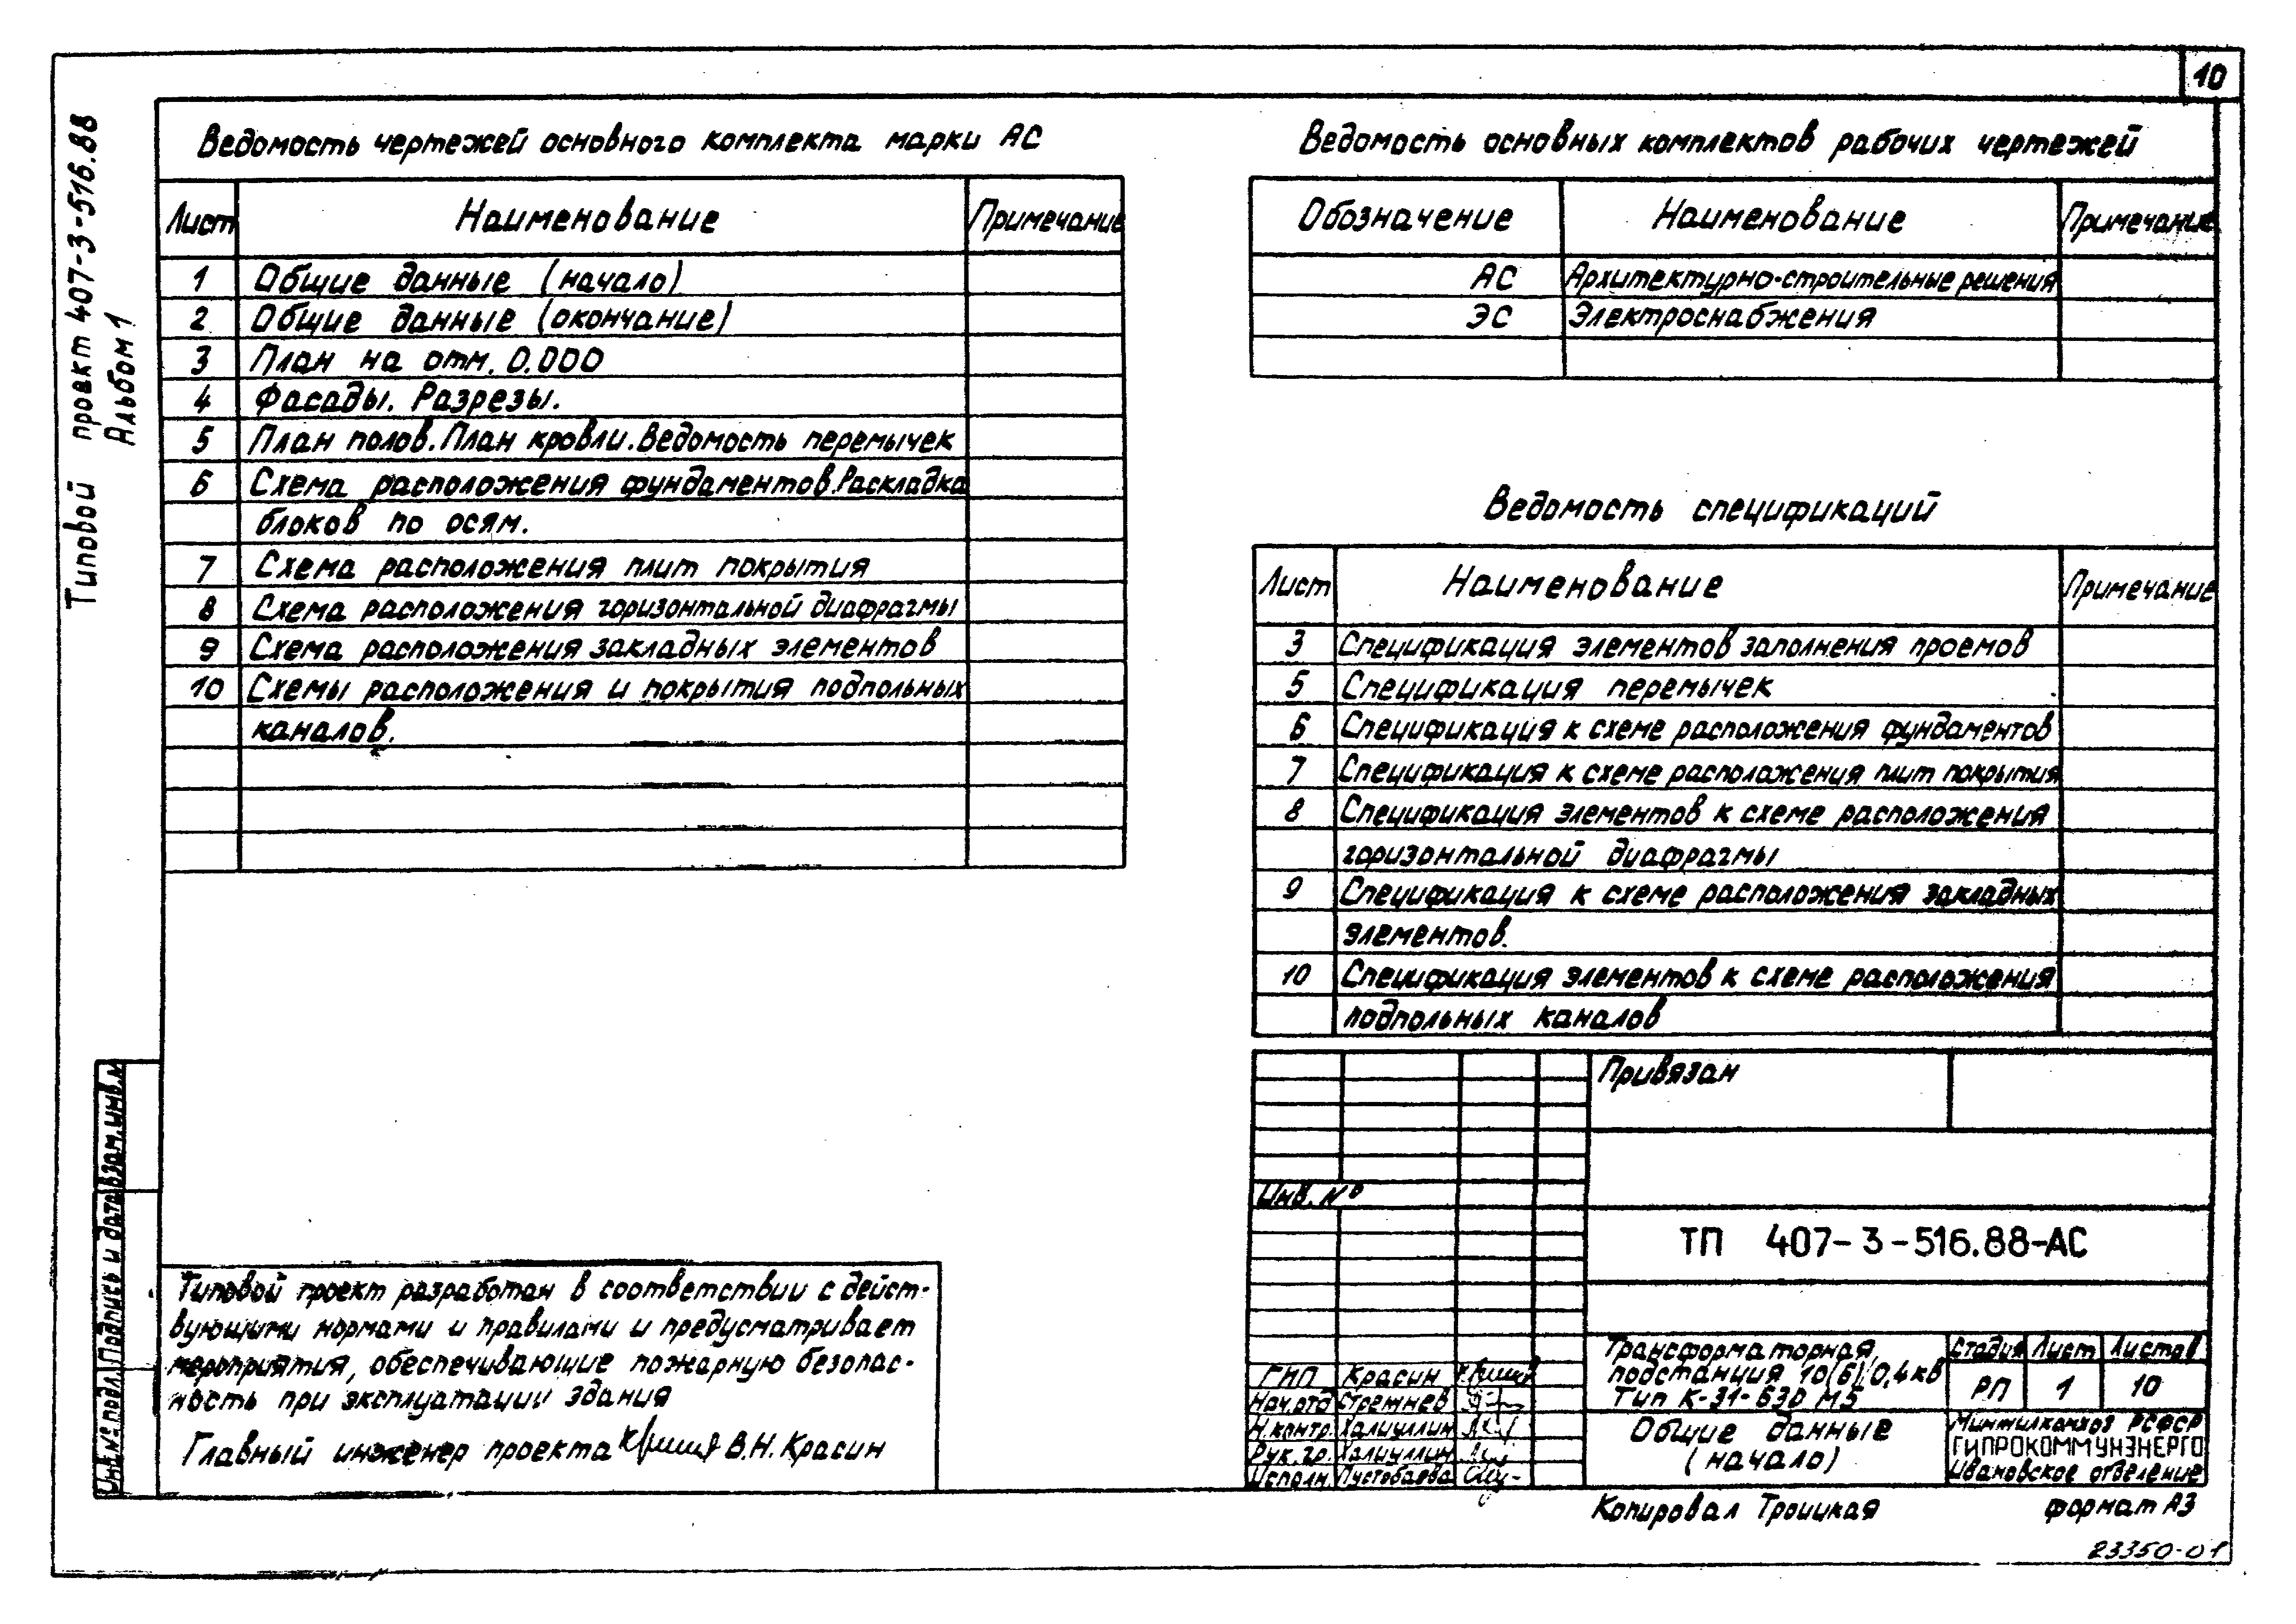 10
Типовой проект 407-3-516.88
Альбом 1
Ведомость чертежей основного комплекта марки АС
Лист Наименование Примечание
1 Общие данные (начало)
2 Общие данные (окончание)
3 План на отм. 0.000
4 Фасады. Разрезы.
5 План полов. План кровли. Ведомость перемычек
6 Схема расположения фундаментов. Раскладка
блоков по осям.
7 Схема расположения плит покрытия
8 Схема расположения горизонтальной диафрагмы
9 Схема расположения закладных элементов
10 Схемы расположения и покрытия подпольных
каналов.
Ведомость основных комплектов рабочих чертежей
Обозначение Наименование Примечание
АС Архитектурно-строительные решения
ЭС Электроснабжения
Ведомость спецификаций
Лист Наименование Примечание
3 Спецификация элементов заполнения проемов
5 Спецификация перемычек
6 Спецификация к схеме расположения фундаментов
7 Спецификация к схеме расположения плит покрытия
8 Спецификация элементов к схеме расположения
горизонтальной диафрагмы
9 Спецификация к схеме расположения закладных
элементов.
10 Спецификация элементов к схеме расположения
подпольных каналов
Инв.№ подл. Подпись и дата Взам.инв.№
Типовой проект разработан в соответствии с дейст-
вующими нормами и правилами и предусматривает
мероприятия, обеспечивающие пожарную безопас-
ность при эксплуатации здания
Главный инженер проекта В.Н. Красин
Привязан
Инв. №
ТП 407-3-516.88-АС
ГИП Красин
Нач.отд Стремнев
Н.контр. Халиуллин
Рук.гр. Халиуллин
Исполн. Пустобаева
Трансформаторная
подстанция 10(6)/0,4кв
Тип К-31-630 М5
Стадия Лист Листов
РП 1 10
Общие данные
(начало)
Минжилкомхоз РСФСР
ГИПРОКОММУНЭНЕРГО
Ивановское отделение
Копировал Троицкая формат А3
23350-01